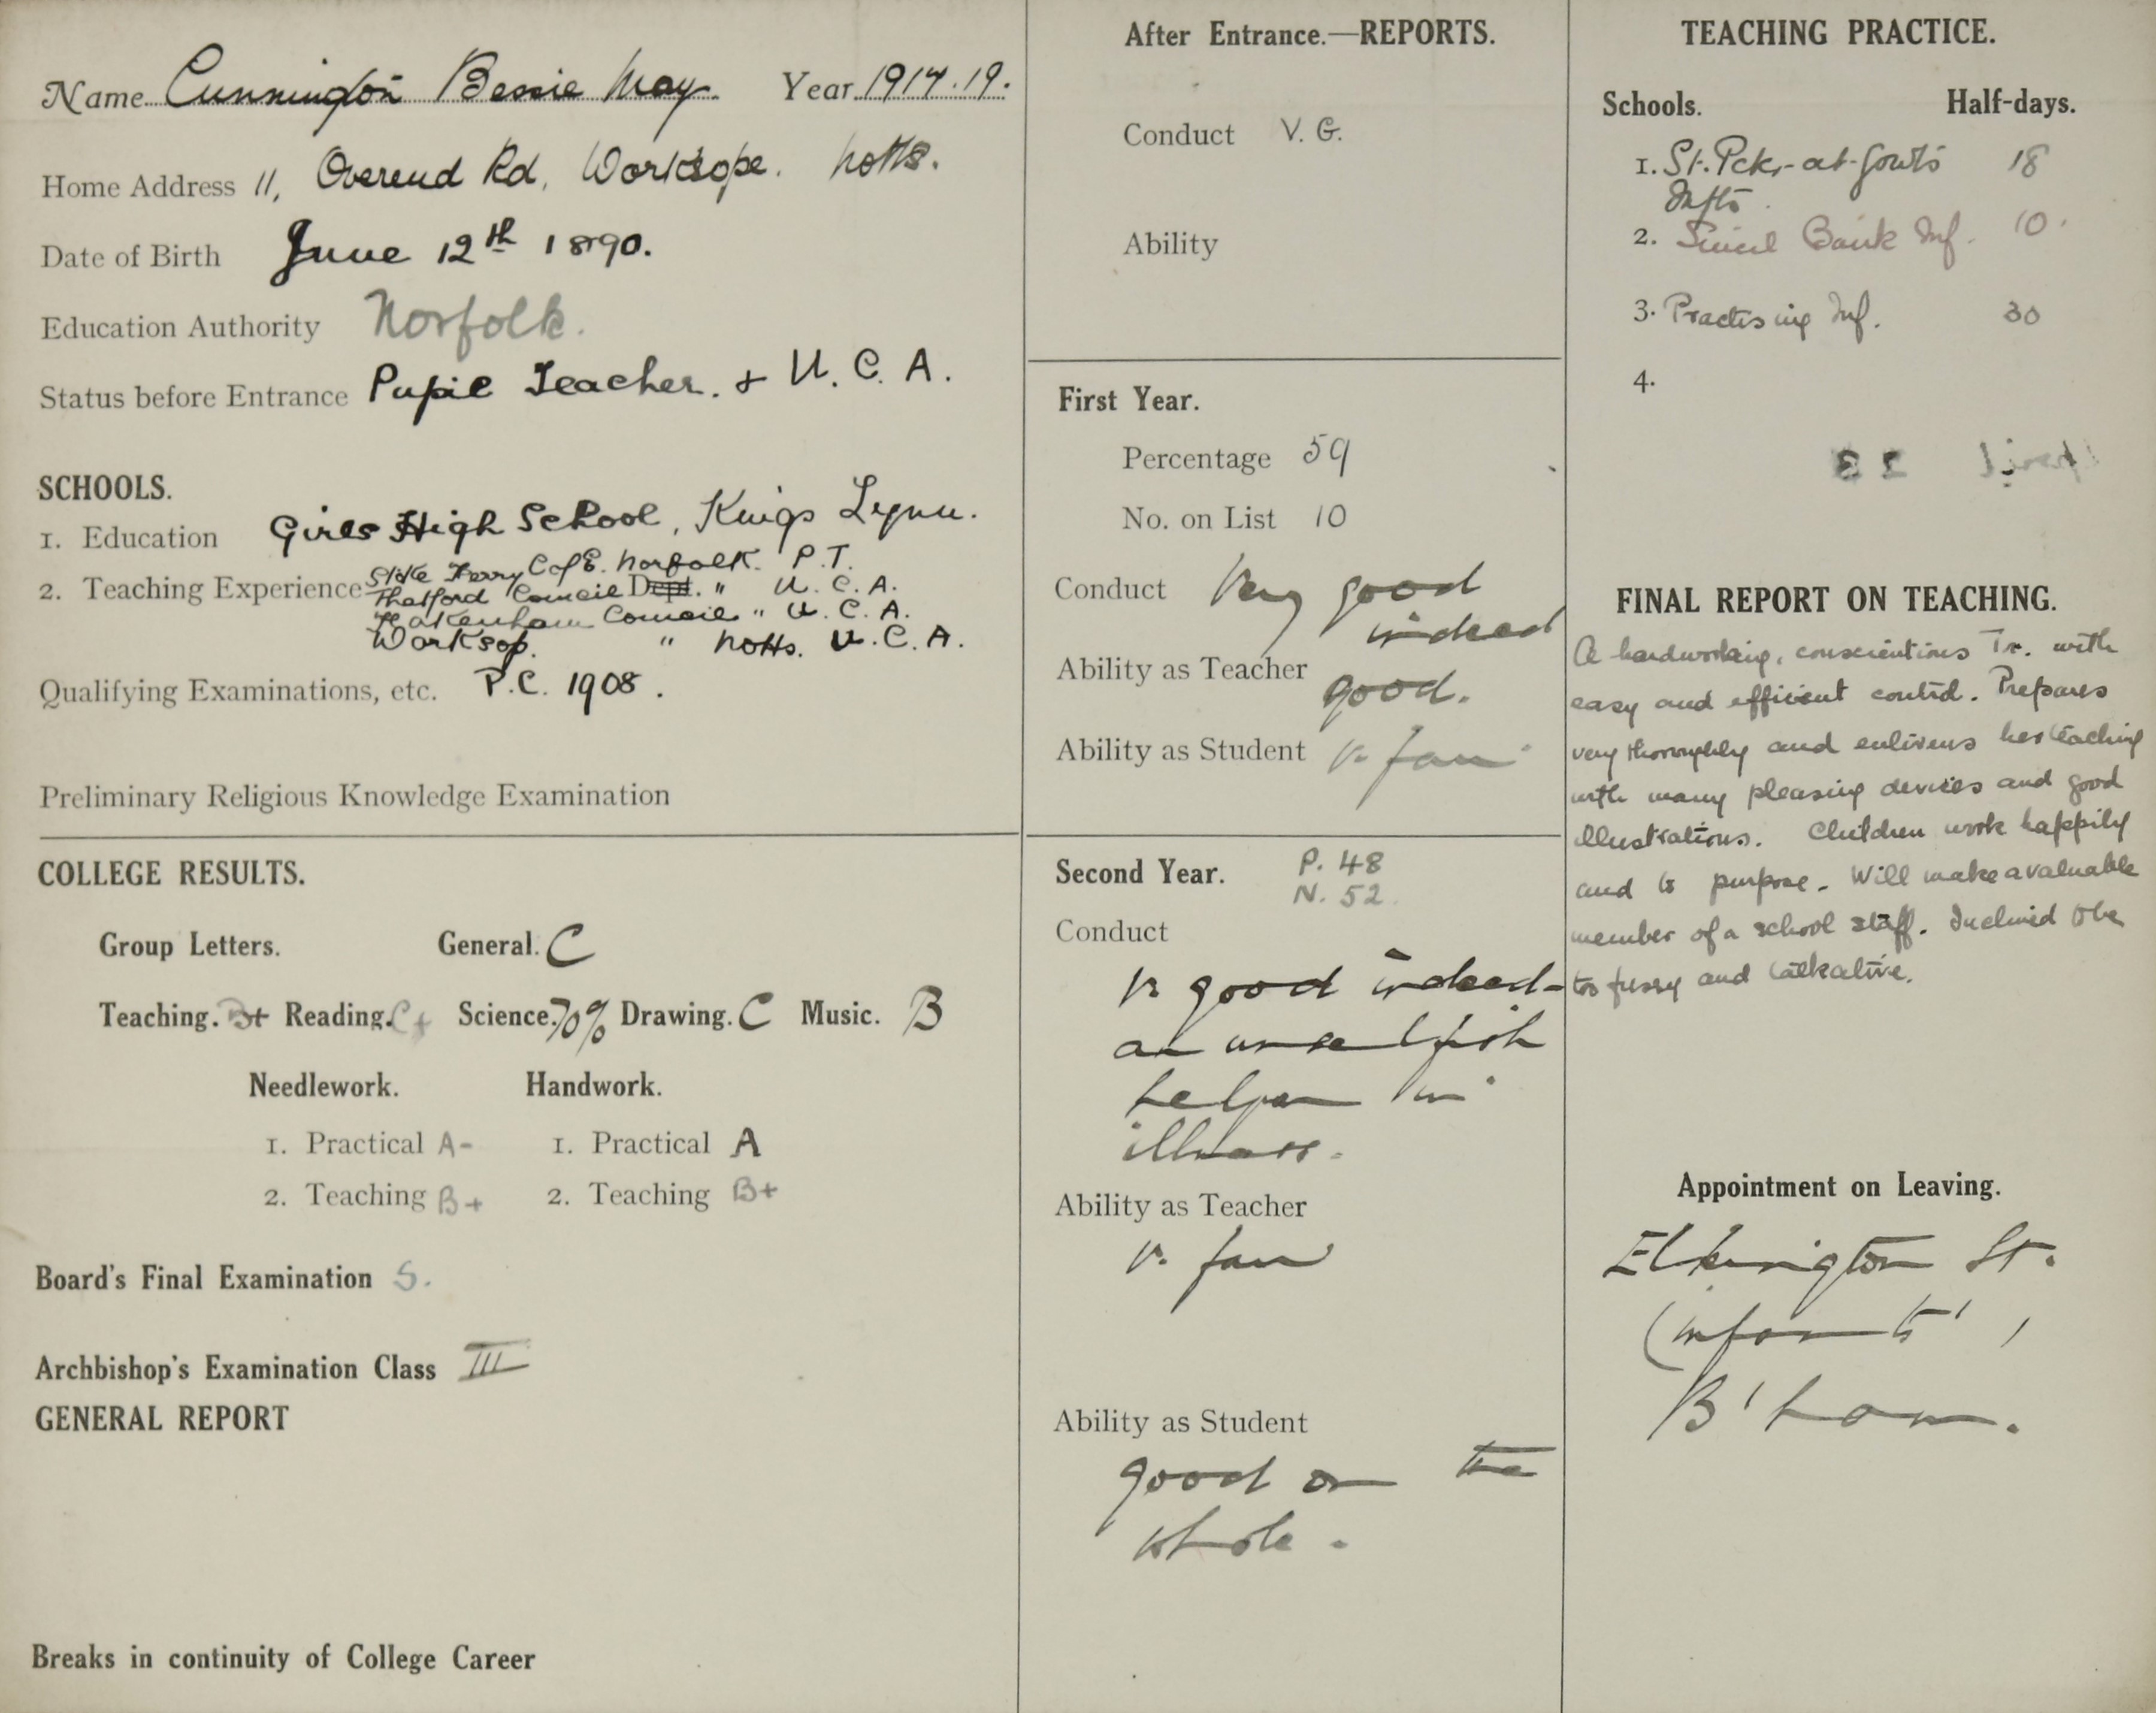 Name Cunnington Bessie May. Year 1917.19.
Home Address 11, Overend Rd, Worksope. Notts.
Date of Birth June 12th 1890.
Education Authority Norfolk.
Status before Entrance Pupil Teacher. + U. C. A.
SCHOOLS.
1. Education Girls High School, Kings Lynn.
2. Teaching Experience Stoke Ferry C of E. Norfolk. P.T.
Thetford Council Dept. " U. C. A.
Fakenham Council " U. C. A.
Worksop. " Notts. U. C. A.
Qualifying Examinations, etc. P.C. 1908.
Preliminary Religious Knowledge Examination
COLLEGE RESULTS.
Group Letters. General. C
Teaching. B+ Reading. C+ Science. 70% Drawing. C Music. B
Needlework. Handwork.
1. Practical A- 1. Practical A
2. Teaching B+ 2. Teaching B+
Board's Final Examination S.
Archbishop's Examination Class III
GENERAL REPORT
Breaks in continuity of College Career
After Entrance.—REPORTS.
Conduct V. G.
Ability
First Year.
Percentage 59
No. on List 10
Conduct Very good
indeed
Ability as Teacher good.
Ability as Student v. fair
Second Year. P. 48
N. 52
Conduct
v. good indeed-
an unselfish
helper in
illness.
Ability as Teacher
v. fair
Ability as Student
good on the
whole.
TEACHING PRACTICE.
Schools. Half-days.
1. St. Peter-at-Gowts 18
Infts.
2. Bank Inf. 10.
3. Practising Inf. 30
4.
FINAL REPORT ON TEACHING.
A hardworking, conscientious Tr. with
easy and efficient control. Prepares
very thoroughly and enlivens her teaching
with many pleasing devices and good
illustrations. Children work happily
and to purpose. Will make a valuable
member of a school staff. Inclined to be
too fussy and talkative.
Appointment on Leaving.
Elkington St.
(Infants',
B'ham.